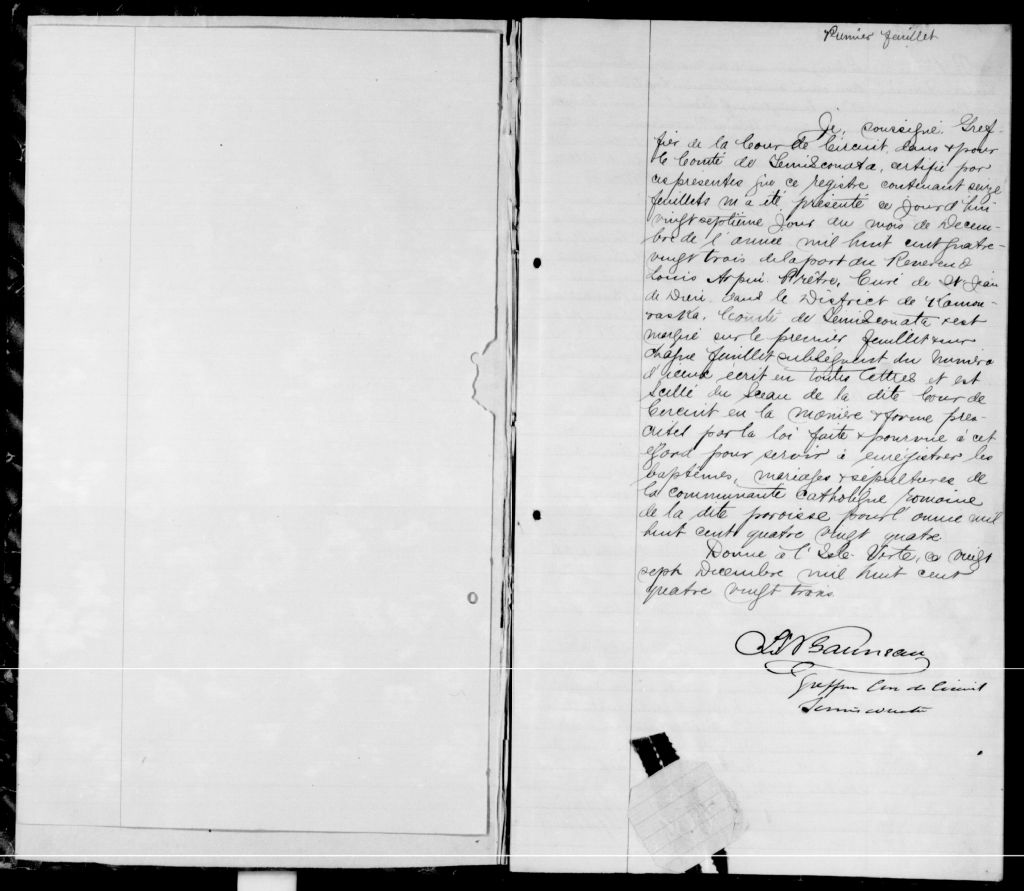 Premier feuillet
Je, soussigné, Gref-
fier de la Cour de Circuit, dans & pour
le Comté de Témisconata, certifie par
ces présentes que ce registre contenant seize
feuillets m'a été présenté ce jourd'hui
vingt septième jour du mois de Decem-
bre de l'année mil huit cent quatre-
vingt trois de la part du Reverend
Louis Arpin Prêtre, Curé de St Jean
de Dieu dans le District de Kamou-
raska, Comté de Témisconata & est
marqué sur le premier feuillet & sur
chaque feuillet subséquent du numéro
d'iceux écrit en toutes lettres et est
scellé du sceau de la dite Cour de
Circuit en la manière & forme pres-
crites par la loi faite & pourvue à cet
egard pour servir à enrégistrer les
baptêmes, mariages & sépultures de
la communauté catholique romaine
de la dite paroisse pour l'année mil
huit cent quatre vingt quatre
Donné à l'Isle-Verte, ce vingt
sept Décembre mil huit cent
quatre vingt trois.
Greffier Cour de Circuit
Témisconata